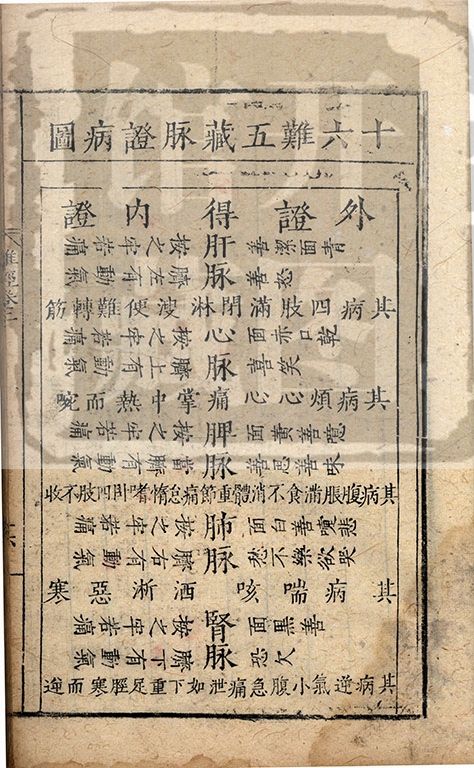 十六難五藏脉證病圖
外證得內證
善潔面青
善怒
肝脉
臍左有動氣
按之牢若痛
其病四肢滿閉淋溲便難轉筋
面赤口乾
喜笑
心脉
臍上有動氣
按之牢若痛
其病煩心心痛掌中熱而啘
面黃善噫
善思善味
脾脉
當臍有動氣
按之牢若痛
其病腹脹滿食不消體重節痛怠惰嗜卧四肢不收
面白善嚏悲
愁不樂欲哭
肺脉
臍右有動氣
按之牢若痛
其病喘咳洒淅惡寒
面黑善
恐欠
腎脉
臍下有動氣
按之牢若痛
其病逆氣小腹急痛泄如下重足脛寒而逆